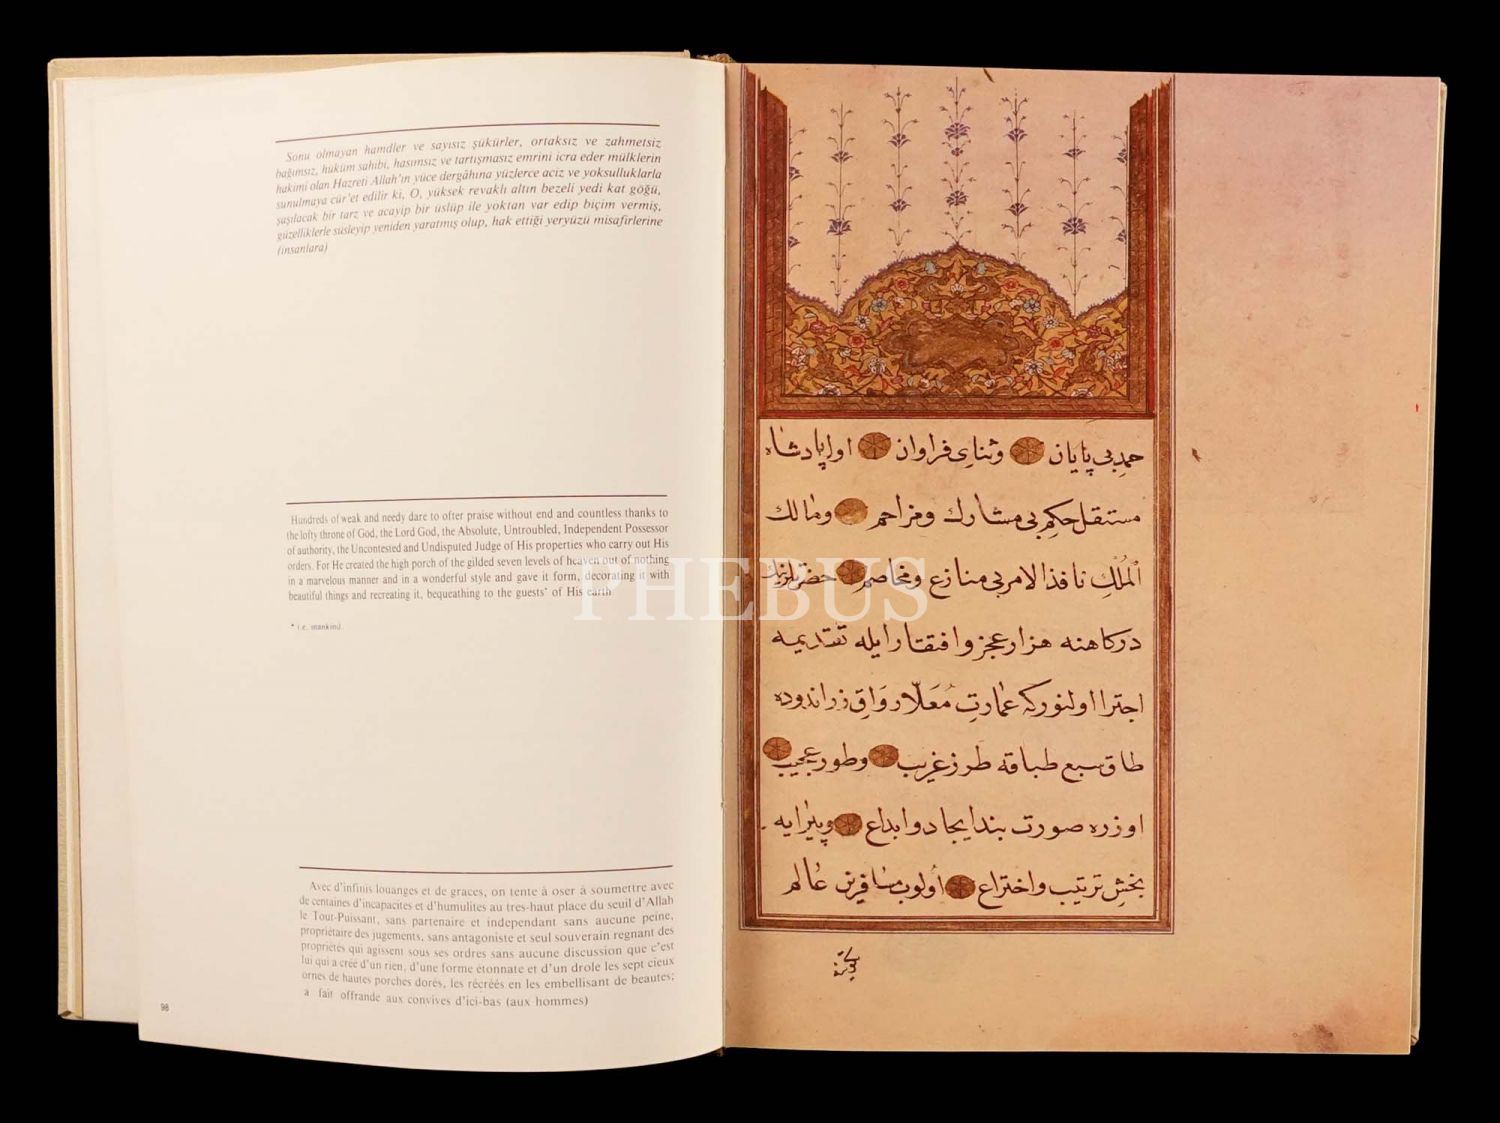 Sonu olmayan hamdler ve sayısız şükürler, ortaksız ve zahmetsiz
bağımsız, hüküm sahibi, hasımsız ve tartışmasız emrini icra eder mülklerin
hakimi olan Hazreti Allah'ın yüce dergâhına yüzlerce aciz ve yoksulluklarla
sunulmaya cür'et edilir ki, O, yüksek revaklı altın bezeli yedi kat göğü,
şaşılacak bir tarz ve acayip bir üslûp ile yoktan var edip biçim vermiş,
güzelliklerle süsleyip yeniden yaratmış olup, hak ettiği yeryüzü misafirlerine
(insanlara)
Hundreds of weak and needy dare to ofter praise without end and countless thanks to
the lofty throne of God, the Lord God, the Absolute, Untroubled, Independent Possessor
of authority, the Uncontested and Undisputed Judge of His properties who carry out His
orders. For He created the high porch of the gilded seven levels of heaven out of nothing
in a marvelous manner and in a wonderful style and gave it form, decorating it with
beautiful things and recreating it, bequeathing to the guests* of His earth
* i.e. mankind.
Avec d'infinis louanges et de graces, on tente à oser à soumettre avec
de centaines d'incapacites et d'humulites au tres-haut place du seuil d'Allah
le Tout-Puissant, sans partenaire et independant sans aucune peine,
propriétaire des jugements, sans antagoniste et seul souverain regnant des
propriétés qui agissent sous ses ordres sans aucune discussion que c'est
lui qui a créé d'un rien, d'une forme étonnate et d'un drole les sept cieux
ornes de hautes porches dorés, les récréés en les embellisant de beautes;
a fait offrande aux convives d'ici-bas (aux hommes)
98
حمد بی پایان وثنای فراوان اول پادشاه
مستقل حکم بی مشارك ومزاحم ومالك
الملك نافذ الامر بی منازع ومخاصم حضرتلرینك
درکاهنه هزار عجز وافتقار ایله تقدیمه
اجترا اولنورکه عمارت معلا رواق زراندوده
طاق سبع طباقه طرز غریب وطور عجیب
اوزره صورت بند ایجاد وابداع وپیرایه
بخش ترتیب واختراع اولوب مسافرین عالم
PHEBUS